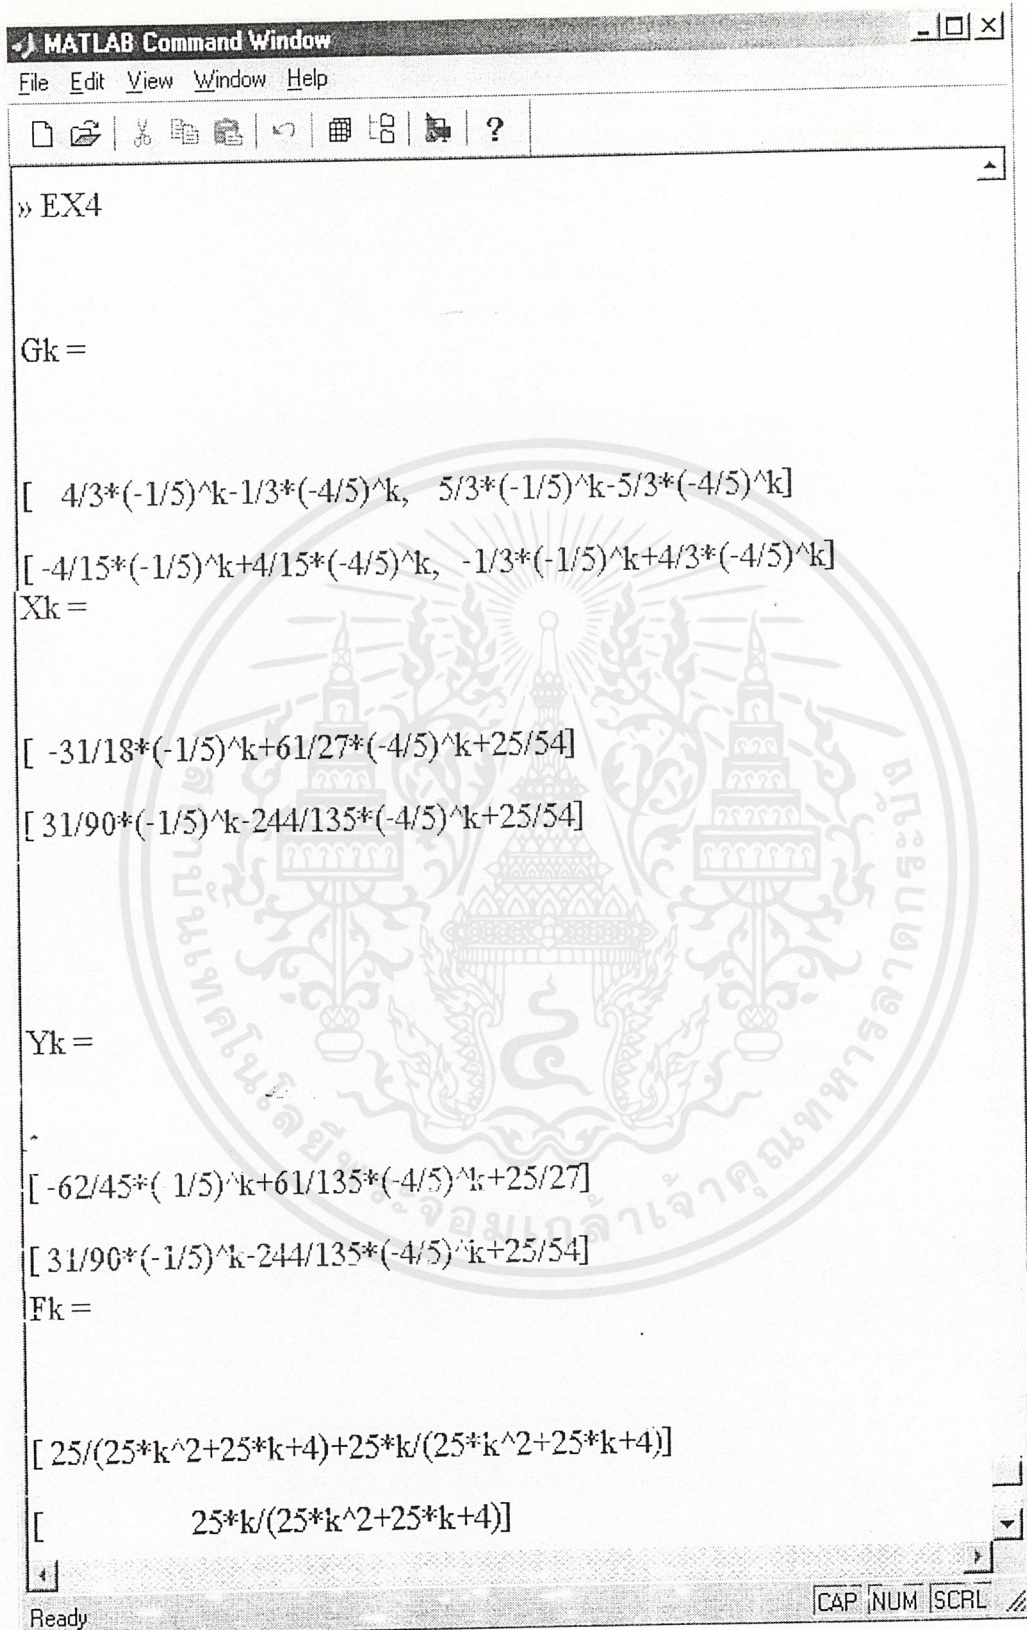 MATLAB Command Window
File Edit View Window Help
» EX4
Gk =
[ 4/3*(-1/5)^k-1/3*(-4/5)^k, 5/3*(-1/5)^k-5/3*(-4/5)^k]
[ -4/15*(-1/5)^k+4/15*(-4/5)^k, -1/3*(-1/5)^k+4/3*(-4/5)^k]
Xk =
[ -31/18*(-1/5)^k+61/27*(-4/5)^k+25/54]
[ 31/90*(-1/5)^k-244/135*(-4/5)^k+25/54]
Yk =
[ -62/45*( 1/5)^k+61/135*(-4/5)^k+25/27]
[ 31/90*(-1/5)^k-244/135*(-4/5)^k+25/54]
Fk =
[ 25/(25*k^2+25*k+4)+25*k/(25*k^2+25*k+4)]
[ 25*k/(25*k^2+25*k+4)]
Ready CAP NUM SCRL
สถาบันเทคโนโลยีพระจอมเกล้าเจ้าคุณทหารลาดกระบัง